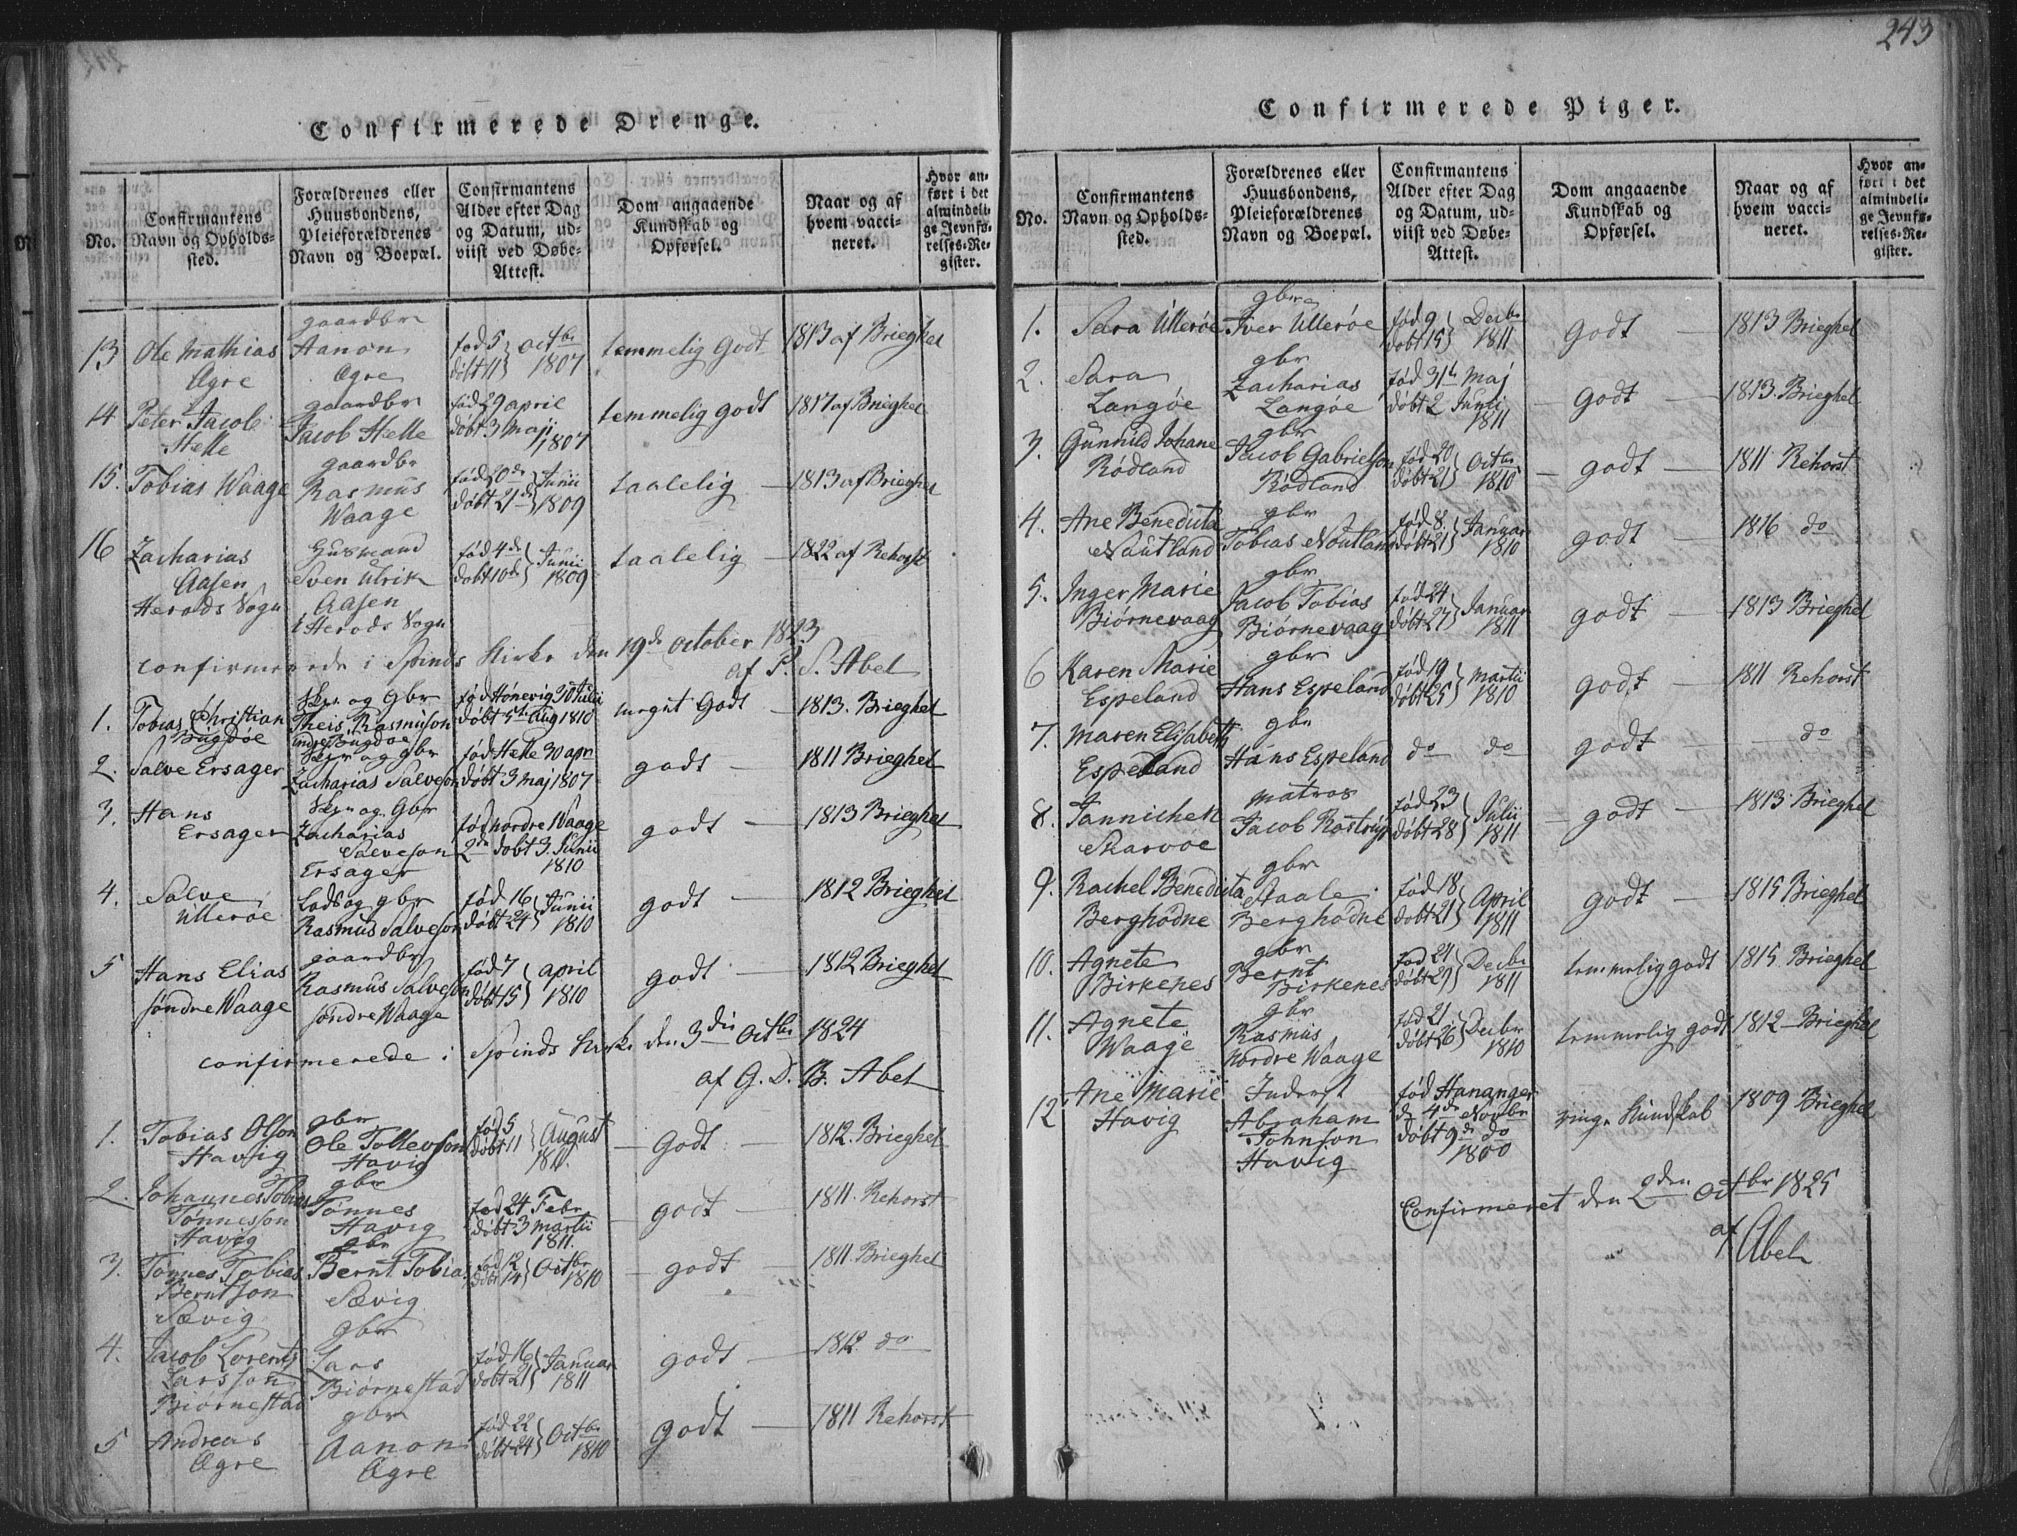 243
Confirmerede Drenge.
No.
Confirmantens
Navn og Opholds-
sted.
Forældrenes eller
Huusbondens,
Pleieforældrenes
Navn og Boepæl.
Confirmantens
Alder efter Dag
og Datum, ud-
viist ved Døbe-
Attest.
Dom angaaende
Kundskab og
Opførsel.
Naar og af
hvem vacci-
neret.
Hvor an-
ført i det
almindeli-
ge Jevnfø-
relses-Re-
gister.
13 Ole Mathias
Agre
gaardbr
Aanon
Agre
fød 5
døbt 11 } octbr
1807
temmelig Godt
1813 af Brieghel
14 Peter Jacob
Helle
gaardbr
Jacob Helle
fød 29 april
døbt 3 Maji
1807
temmelig godt
1817 af Brieghel
15. Tobias Waage
gaardbr
Rasmus
Waage
fød 20de
døbt 21de } Junii
1809
taalelig —
1813 af Brieghel
16 Zacharias
Aasen
Herads Sogn
Husmand
Sven Ulrik
Aasen
i Herads Sogn
fød 4de
døbt 10de } Junii
1809
taalelig —
1822 af Rehorst
confirmerede i Spinds Kirke den 19de october 1823
af P. S. Abel
1. Tobias Christian
Bugdøe
Skr. og Gbr
Theis Rasmuson
indre Bugdøe
fød Hønevig 30 Julii
døbt 5t Aug 1810
meget Godt —
1813. Brieghel
2. Salve Ersager
Skr og gbr
Zacharias Salveson
fød Helle 30 apr
døbt 3 Maj 1807
godt —
1811 Brieghel
3. Hans
Ersager
Skr og Gbr
Zacharias
Salveson
Ersager
fød nordre Waage
2den døbt 3. Junii
1810
godt —
1813 Brieghel
4. Salve
Ullerøe
Lods og gbr
Rasmus Salveson
fød 16
døbt 24 } Junii
1810
godt —
1812 Brieghel
5 Hans Elias
søndre Waage
gaardbr
Rasmus Salveson
søndre Waage
fød 7
døbt 15 } april
1810
godt —
1812 Brieghel
confirmerede i Spinds Kirke den 3die Octbr 1824
af G. D. B. Abel
1. Tobias Olson
Havig
gbr
Ole Tollevson
Havig
fød 5
døbt 11 } August
1811.
— Godt —
1812. Brieghel
2. Johannes Tobias
Tønnesson
Havig
gbr
Tønnes
Havig
fød 24 Febr
døbt 3 martii
1811.
— godt —
1811. Rehorst
3. Tønnes Tobias
Berntson
Sævig
gbr
Bernt Tobias
Sævig
fød 12
døbt 14 } Octbr
1810
— godt —
1811. Brieghel
4. Jacob Lorents
Larsson
Biørnestad
gbr
Lars
Biørnestad
fød 16
døbt 21 } Januar
1811
godt —
1812. do
5 Andreas
Agre
gbr
Aanon
Agre
fød 22
døbt 24 } Octbr
1810
godt —
1811 Rehorst
Confirmerede Piger.
No.
Confirmantens
Navn og Opholds-
sted.
Forældrenes eller
Huusbondens,
Pleieforældrenes
Navn og Boepæl.
Confirmantens
Alder efter Dag
og Datum, ud-
viist ved Døbe-
Attest.
Dom angaaende
Kundskab og
Opførsel.
Naar og af
hvem vacci-
neret.
Hvor an-
ført i det
almindeli-
ge Jevnfø-
relses-Re-
gister.
1. Sara Ullerøe
gbr
Iver Ullerøe
fød 9
døbt 15 } Decbr
1811
Godt —
1813 Brieghel
2. Sara
Langøe
gbr
Zacharias
Langøe
fød 31te Maj
døbt 2 Junii
1811
— Godt —
1813. Brieghel
3. Gunnild Johane
Rødland
gbr
Jacob Gabrielson
Rødland
fød 20
døbt 21 } Octbr
1810
— godt —
1811 Rehorst
4. Ane Benedicta
Noutland
gbr
Tobias Noutland
fød 8.
døbt 21 } Januar
1810
godt —
1816 do
5. Inger Marie
Biørnevaag
gbr
Jacob Tobias
Biørnevaag
fød 24
døbt 27 } Januar
1811
godt —
1813 Brieghel
6 Karen Marie
Espeland
gbr
Hans Espeland
fød 19
døbt 25 } martii
1810
godt —
1811 Rehorst
7. Maren Elisabeth
Espeland
gbr
Hans Espeland
do do
godt —
— do
8. Jannichek
Skarvøe
matros
Jacob Rostrup
fød 23
døbt 28 } Julii
1811
— godt —
1813. Brieghel
9. Rachel Benedicta
Berghodne
gbr
Staale
Berghodne
fød 18
døbt 21 } April
1811
godt —
1815 Brieghel
10. Agnete
Birkenes
gbr
Bernt
Birkenes
fød 21
døbt 29 } Decbr
1811
temmelig godt
1815. Brieghel
11. Agnete
Waage
gbr
Rasmus
Nordre Waage
fød 21
døbt 26 } Decbr
1810
temmelig godt
1812 — Brieghel
12 Ane Marie
Havig
Inderst
Abraham
Johnson
Havig
fød Hananger
de 4de Novbr
døbt 9de do
1800
ring. Kundskab
1809 Brieghel
Confirmeret den 2den Octbr 1825
af Abel